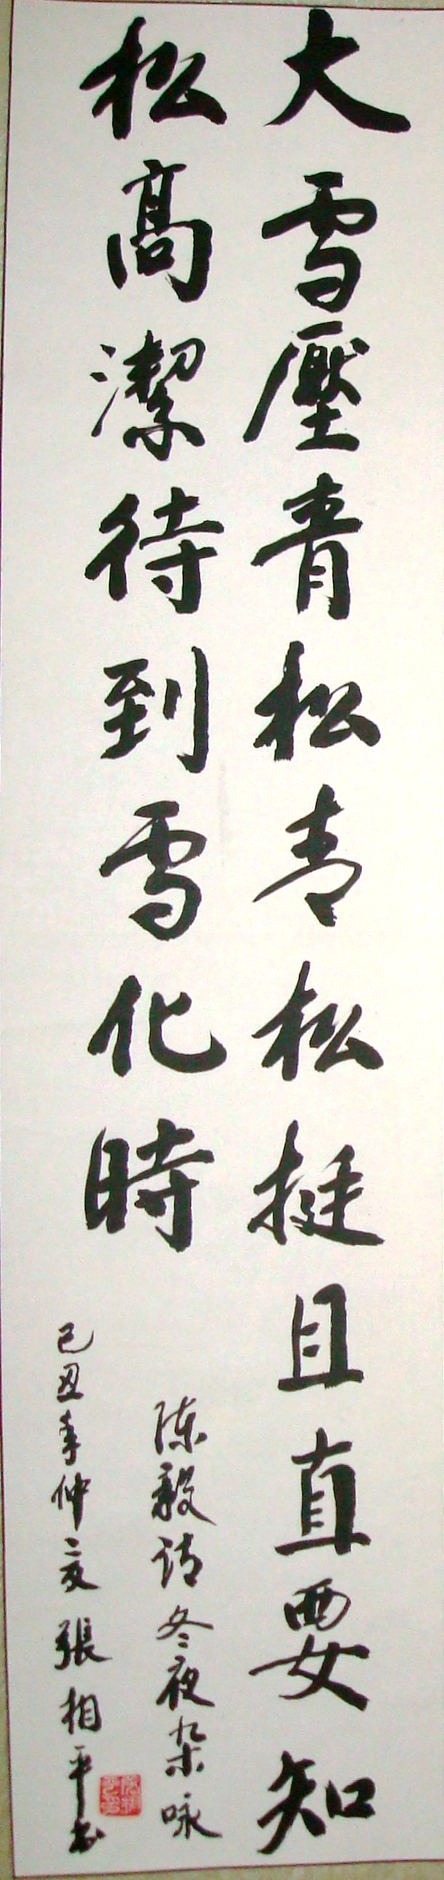 大雪壓青松青松挺且直要知
松高潔待到雪化時
陈毅诗冬夜杂咏
己丑年仲夏張相平书